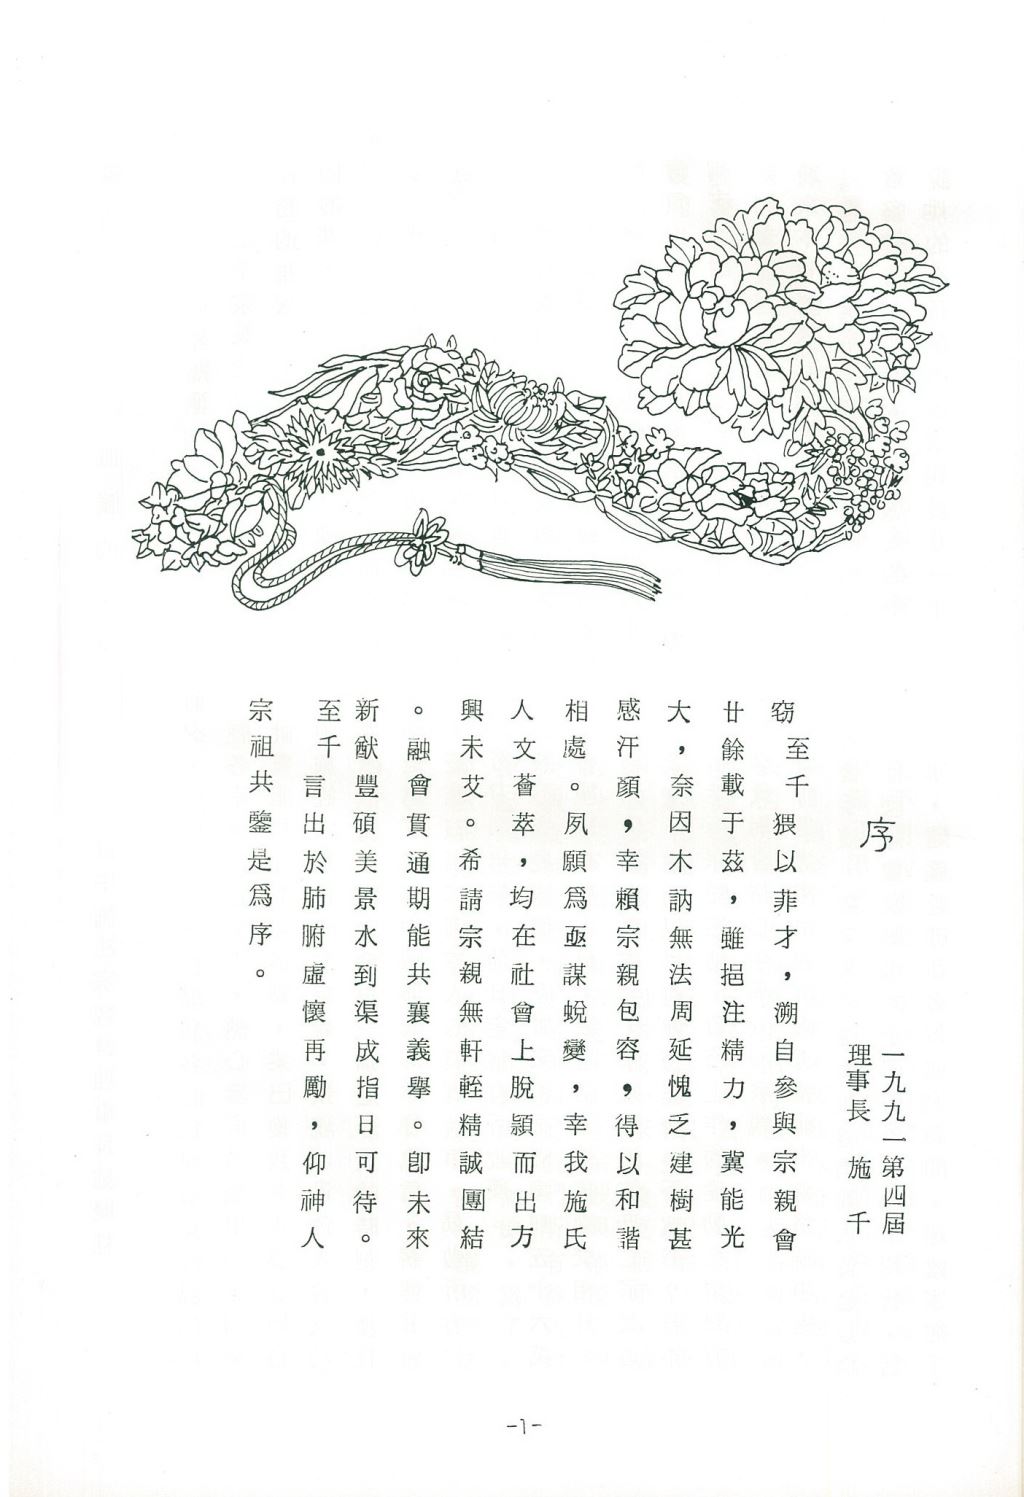 序
一九九一第四屆
理事長 施 千
窃至千猥以菲才，溯自參與宗親會
廿餘載于茲，雖挹注精力，冀能光
大，奈因木訥無法周延愧乏建樹甚
感汗顏，幸賴宗親包容，得以和諧
相處。夙願爲亟謀蛻變，幸我施氏
人文薈萃，均在社會上脫穎而出方
興未艾。希請宗親無軒輊精誠團結
。融會貫通期能共襄義舉。卽未來
新猷豐碩美景水到渠成指日可待。
至千言出於肺腑虛懷再勵，仰神人
宗祖共鑒是爲序。
-1-